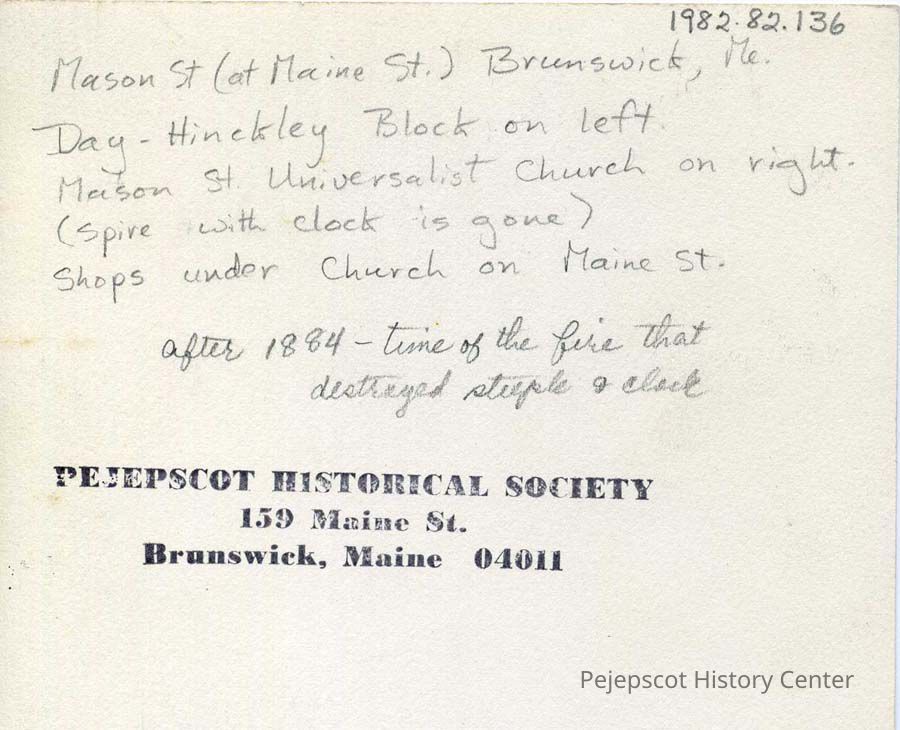 1982.82.136
Mason St (at Maine St.) Brunswick, Me.
Day-Hinckley Block on left.
Mason St. Universalist Church on right.
(spire with clock is gone)
Shops under Church on Maine St.
after 1884 - time of the fire that
destroyed steeple & clock
PEJEPSCOT HISTORICAL SOCIETY
159 Maine St.
Brunswick, Maine 04011
Pejepscot History Center